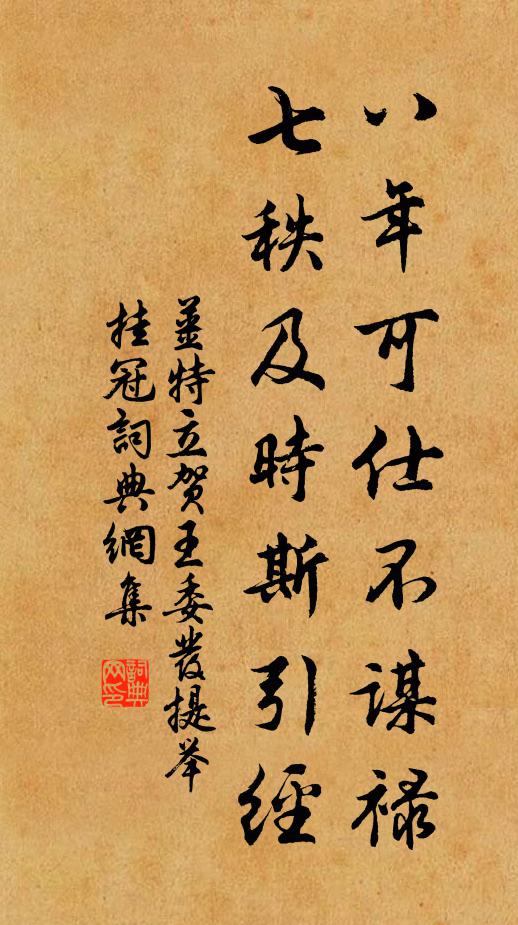 八年可仕不謀禄
七秩及時斯引經
薑特立賀王委發提举
挂冠詞典網集
詞典网印